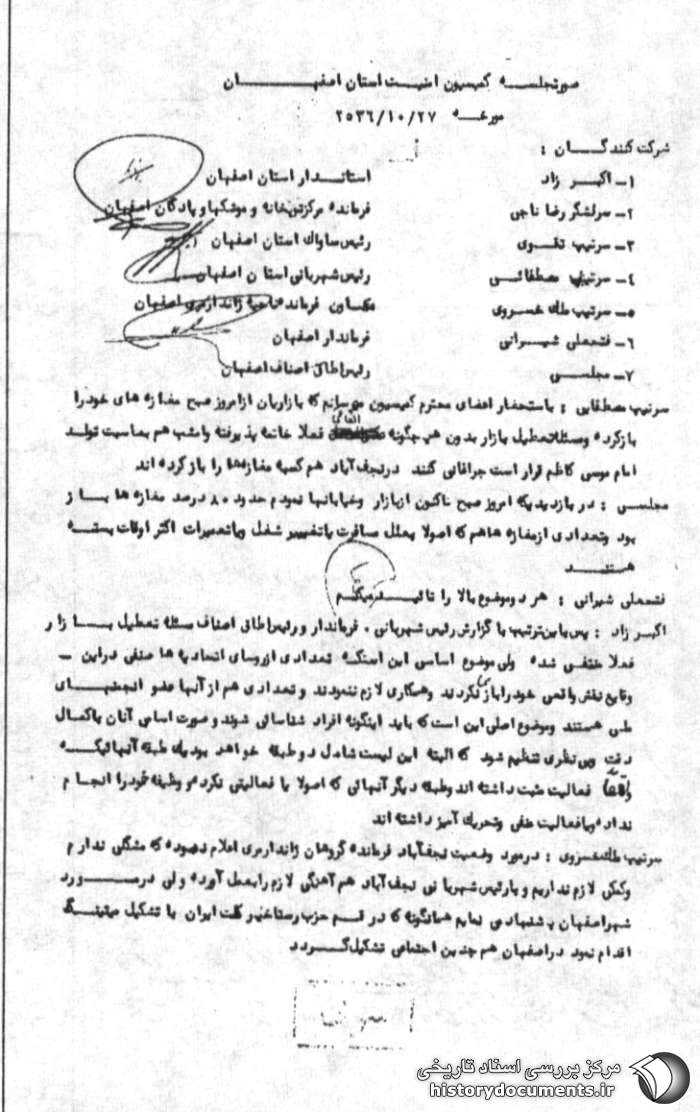 صورتجلسه کمیسیون امنیت استان اصفهان
مورخه ۲۵۳۶/۱۰/۲۷
شرکت کنندگان :
۱- اکبر زاد استاندار استان اصفهان
۲- سرلشگر رضا ناجی فرمانده مرکز توپخانه و موشکها و پادگان اصفهان
۳- سرتیپ تقوی رئیس ساواك استان اصفهان
۴- سرتیپ مصطفائی رئیس شهربانی استان اصفهان
۵- سرتیپ ملك خسروی معاون فرمانده ناحیه ژاندارمری اصفهان
۶- فتحعلی شیرانی فرماندار اصفهان
۷- مجلسی رئیس اطاق اصناف اصفهان
سرتیپ مصطفایی : باستحضار اعضای محترم کمیسیون میرسانم که بازاریان از امروز صبح مغازه های خود را
باز کرده و مسئله تعطیل بازار بدون هیچگونه اتفاقی فعلا خاتمه پذیرفته و امشب هم بمناسبت تولد
امام موسی کاظم قرار است چراغانی کنند در نجف آباد هم کسبه مغازه ها را باز کرده اند
مجلسی : در بازدیدیکه امروز صبح تاکنون از بازار و خیابانها نمودم حدود ۸۰ درصد مغازه ها بـاز
بود و تعدادی از مغازه ها هم که اصولا بعلل مسافرت یا تغییر شغل و یا تعمیرات اکثر اوقات بسته
هستند
فتحعلی شیرانی : هر دو موضوع بالا را تائید میکنم
اکبر زاد : پس باین ترتیب با گزارش رئیس شهربانی ، فرماندار و رئیس اطاق اصناف مسئله تعطیل بـازار
فعلا منتفی شده ولی موضوع اساسی این است که تعدادی از روسای اتحادیه ها صنفی در این
وقایع نقش واقعی خود را بازی نکردند و همکاری لازم ننمودند و تعدادی هم از آنها عضو انجمنهای
ملی هستند و موضوع اصلی این است که باید اینگونه افراد شناسائی شوند و صورت اسامی آنان با کمال
دقت و بی نظری تنظیم شود که البته این لیست شامل دو طبقه خواهد بود یك طبقه آنهائیکه
واقعا فعالیت مثبت داشته اند و طبقه دیگر آنهائی که اصولا یا فعالیتی نکرده و وظیفه خود را انجام
نداده و یا فعالیت منفی و تحریك آمیز داشته اند
سرتیپ ملك خسروی : در مورد وضعیت نجف آباد فرمانده گروهان ژاندارمری اعلام نموده که مشگلی ندارم
و کمکی لازم نداریم و با رئیس شهربانی نجف آباد هم آهنگی لازم را بعمل آورده ولی در مـورد
شهر اصفهان پیشنهاد می نمایم همانگونه که در قم حزب رستاخیز ملت ایران با تشکیل میتینگ
اقدام نمود در اصفهان هم چنین اجتماعی تشکیل گـردد
مرکز بررسی اسناد تاریخی
historydocuments.ir